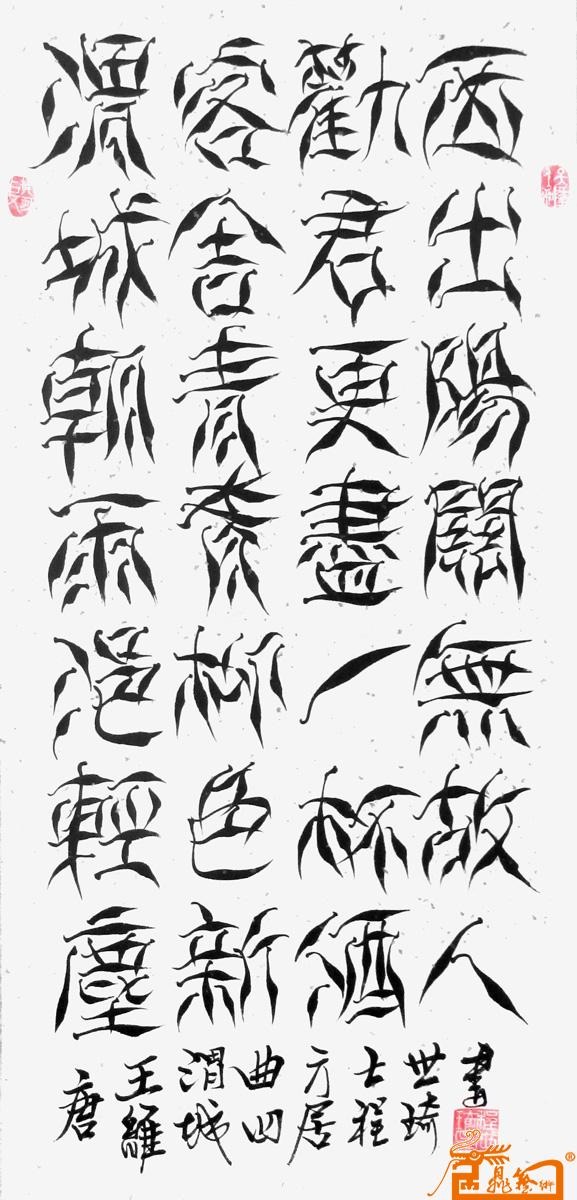 渭城朝雨浥輕塵
客舍青青柳色新
勸君更盡一杯酒
西出陽關無故人
唐
王維
渭城
曲四
方居
士程
世琦
書